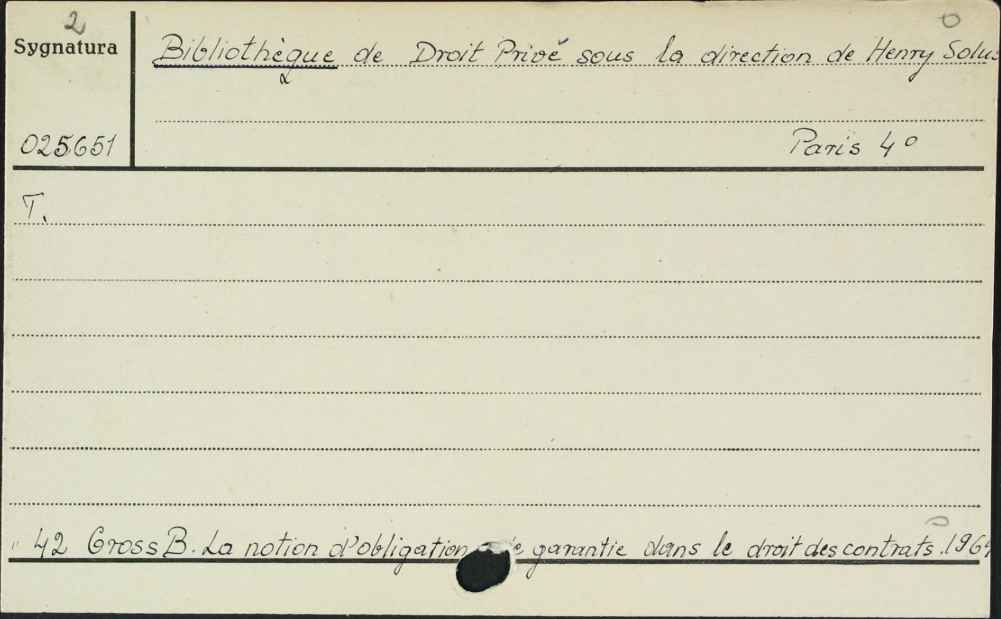 2
Sygnatura
Bibliothèque de Droit Privé sous la direction de Henry Solus
025651
Paris 4°
T.
" 42 Gross B. La notion d'obligation de garantie dans le droit des contrats. 1964